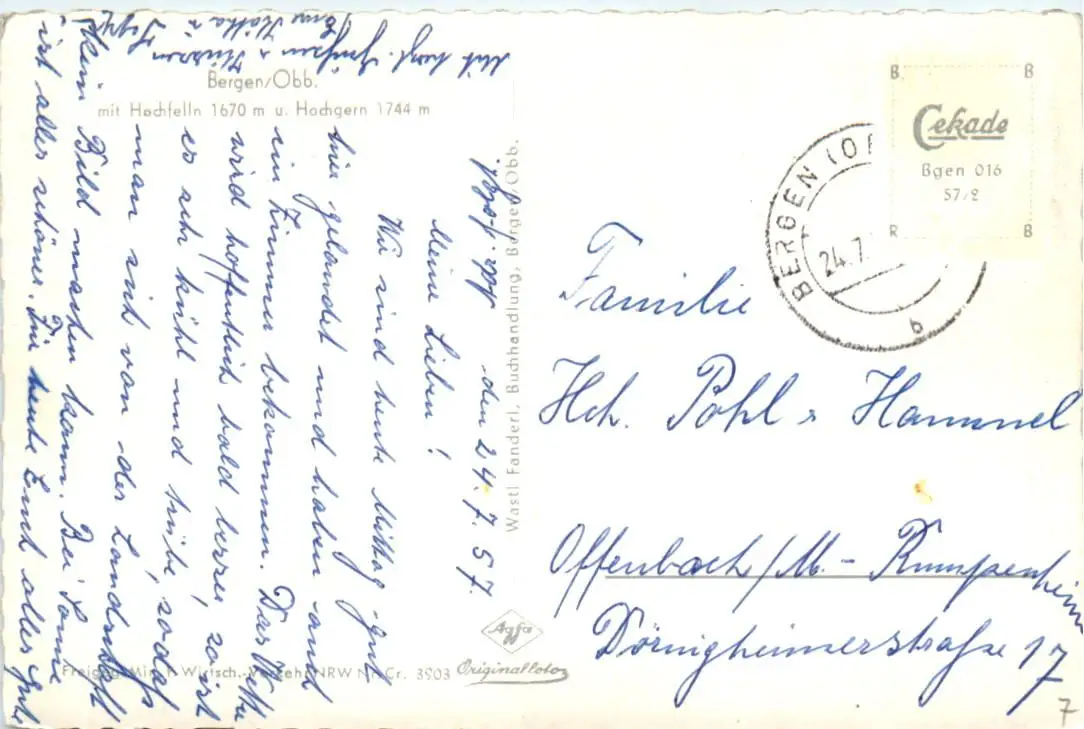 Bergen/Obb.
mit Hochfelln 1670 m u. Hochgern 1744 m
den 24.7.57.
Meine Lieben!
Wir sind heute Mittag gut
hier gelandet und haben auch
ein Zimmer bekommen. Das Wetter
wird hoffentlich bald besser, so ist
es sehr kühl und trübe, sodaß
man sich von der Landschaft
kein Bild machen kann. Bei Sonne
ist alles schöner. Für heute Euch alles Gute
Mit herzl. Grüßen u. Küssen
Eure Käthe u.
Wastl Fanderl, Buchhandlung, Bergen/Obb.
Agfa
Originalfotos
Freigeg. Min. f. Wirtsch.-Verkehr NRW Nr. Cr. 3903
BERGEN (OB
24.7.
b
B B
Cekade
Bgen 016
57/2
R B
Familie
Hch. Pohl u Hammel
Offenbach/M.-Rumpenheim
Dörnigheimerstraße 17
7